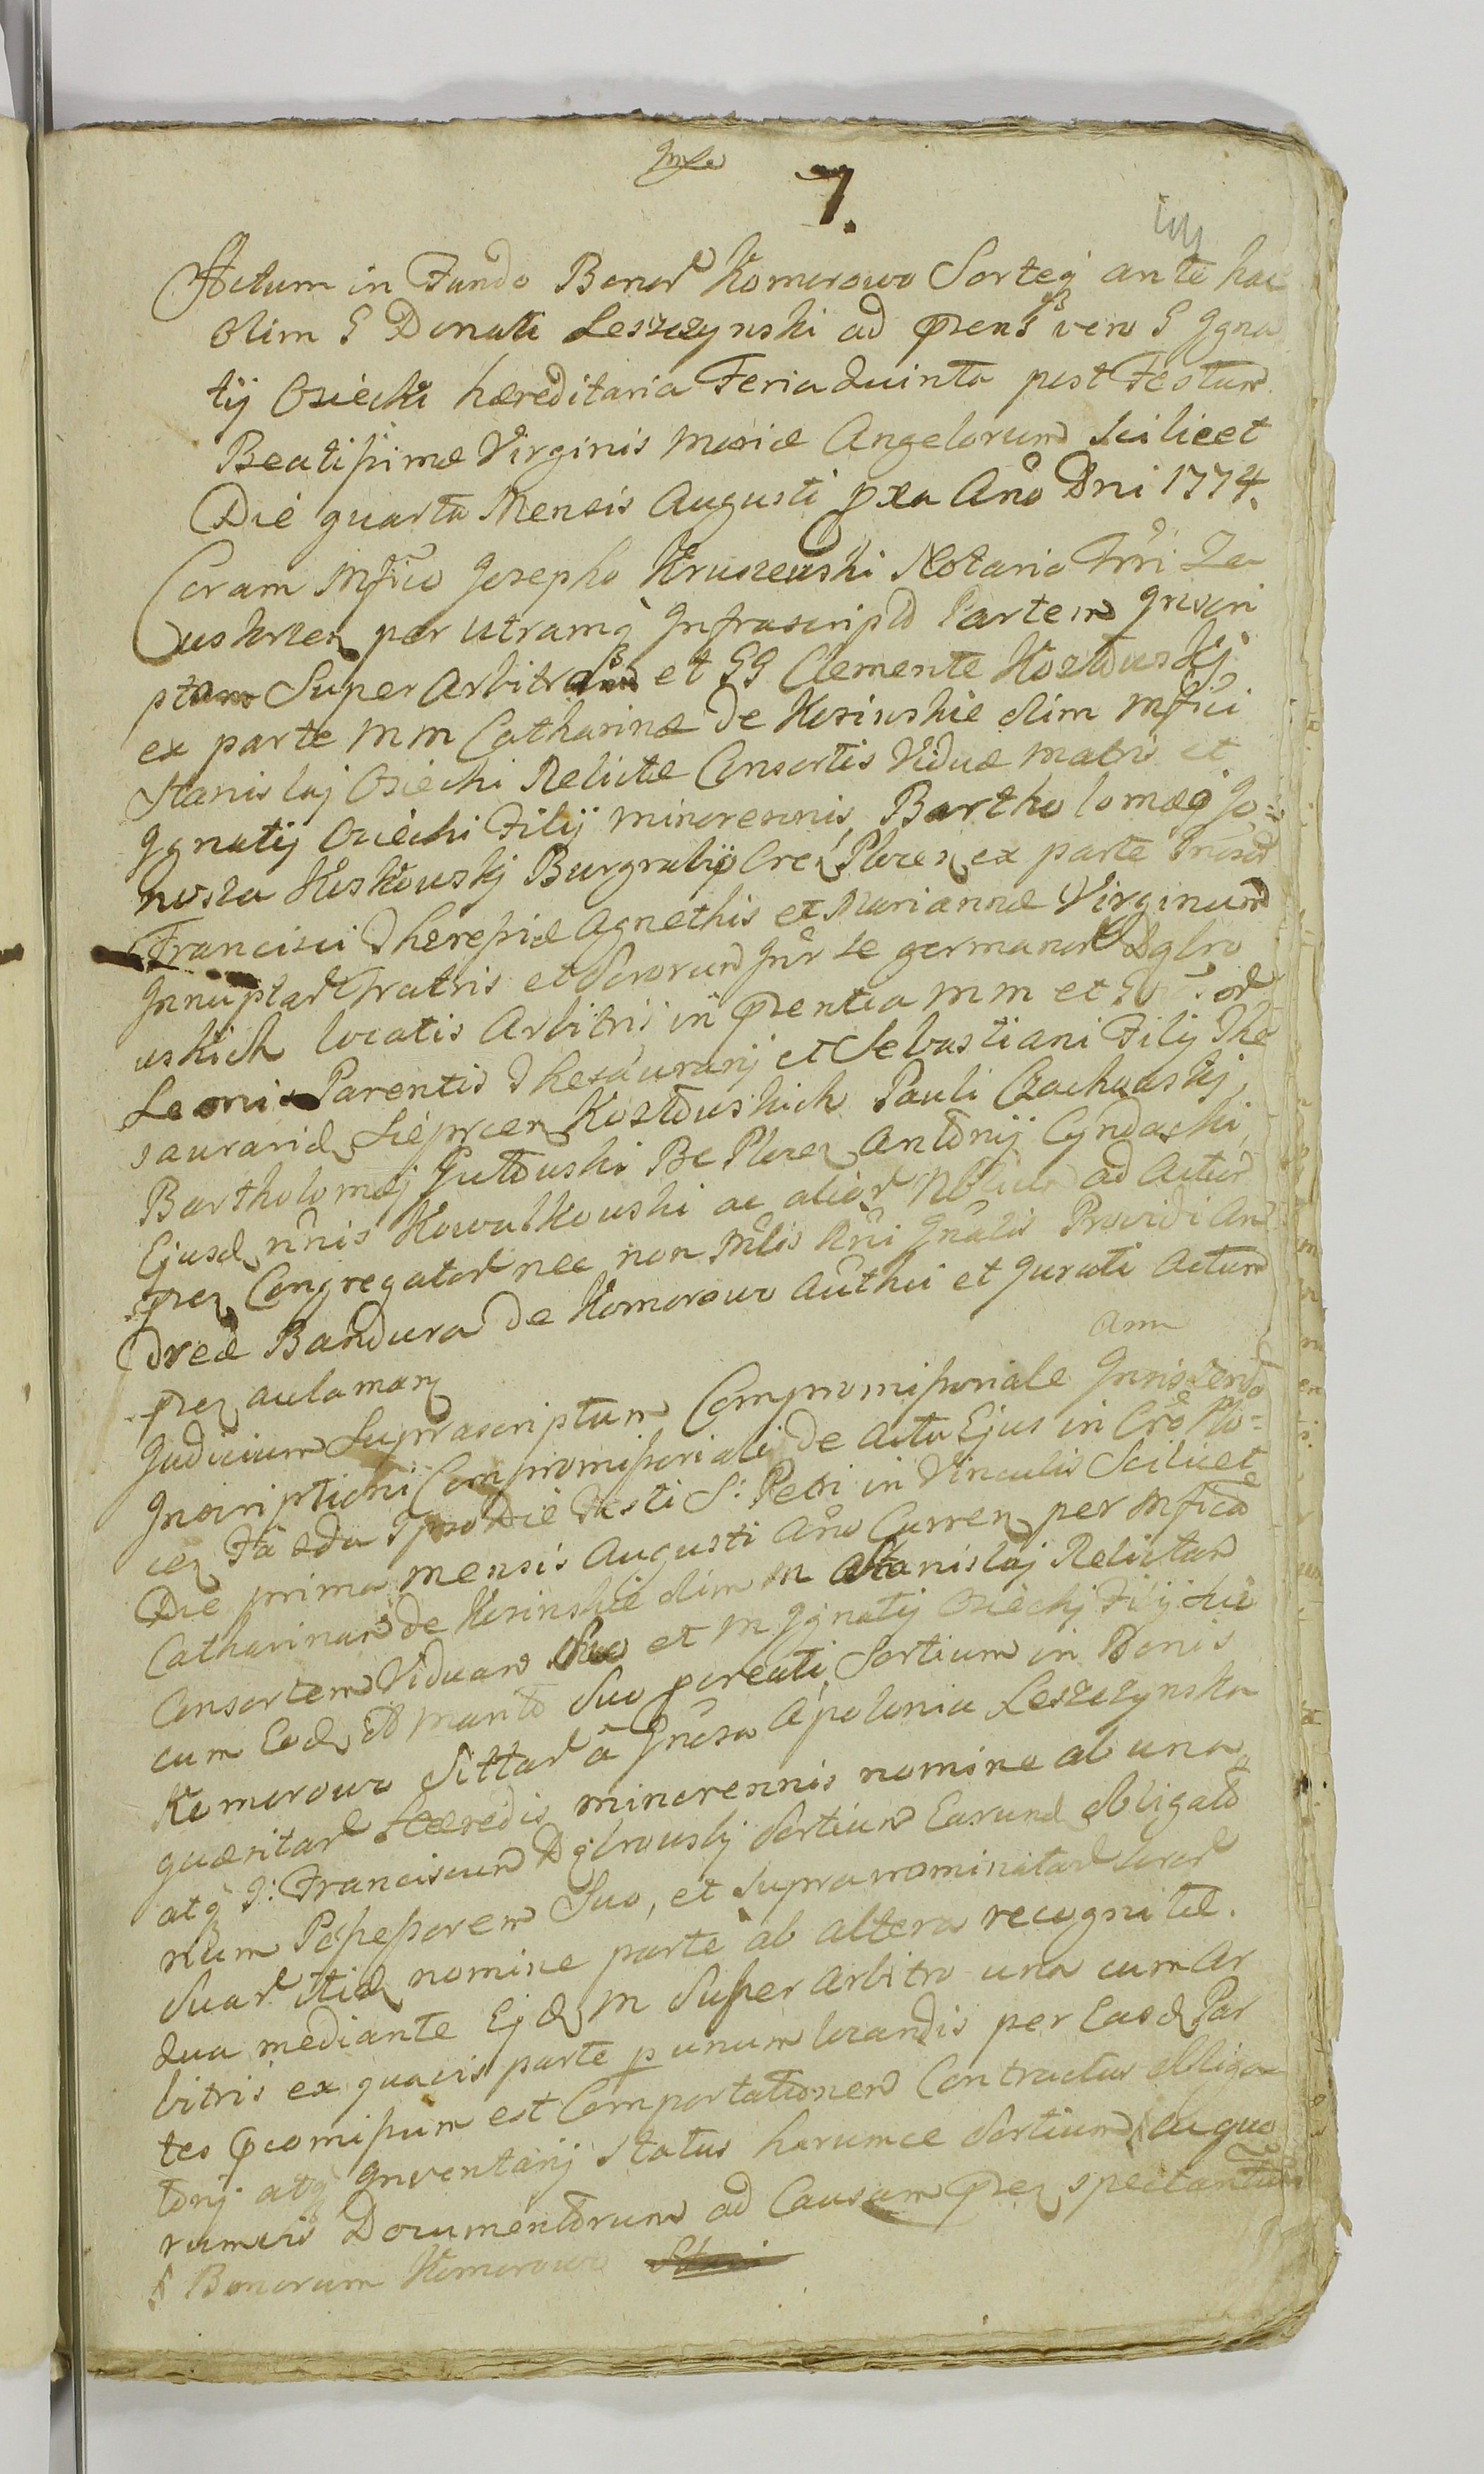 7.
Actum in Fundo Bonor Komorowo Sorteq ante hac
olim G Donati Leszczynski ad prens vero G Igna
tij Osiecki hæreditaria Feria Quinta post Festum
Beatissimæ Virginis Mariæ Angelorum scilicet
Die quarta Mensis Augusti pxa Año Dñi 1774.
Coram Mfico Josepho Kruszewski Notario Trri Za
uskrzen per utramq Infrascriptã Partem Inscri
ptam Super Arbitrum et GG Clemente Kozłowskij
ex parte MM Catharinæ de Kosinskie olim Mfici
Stanislaj Osiecki Relictæ Consortis Viduæ Matris et
Ignatij Osiecki Filij minorennis, Bartholomæo Jo=
nosza Kiskowskj Burgrabio Cren Plocen ex parte
Francisci Theressiæ Agnethis et Mariannæ Virginum
Innuptar Fratris et Sororum Inr se germanor Dąbro
wskich locatis Arbitris in prentia MM et
Leonis Parentis Thesaurarij et Sebastiani Filij The
saurarid Sieprcen Kozłowskich Pauli Czachowskj,
Bartholomæj Gutowski BC Plocen Antonij Cyndacki,
Ejusd nnis Kowalkowski ac alior ad Actum
pren Congregator nec non Mlis Rni Gnalis Providi An
dreæ Bandura de Komorowo Authci et Jurati Actum
pren aclaman
Judicium Suprascriptum Compromissoriale Innixendo
Inscriptioni Compromissoriali de actu Ejus in Cro Plo=
cen Fa eda Ipso Die Festi S: Petri in Vinculis Scilicet
Die prima mensis Augusti Año Curren per Mficã
Catharinam de Kosinskie olim M Stanislaj Relictam
Consortem Viduam suo et M Ignatij Osieckj Filij sui
cum Eod et Marito suo parenti Sortium in Bonis
Komorowo Sittar â Gnosa Apolonia Leszczynska
quæsitar Hæredis minorennis nomine ab una
atq G: Franciscum Dąbrowskj Sortium Earund obligato
rium Possessorem Suo, et supranominatar Soror
Suar itid nomine parte ab altera recognitæ.
Qua mediante Ejd M Super Arbitro una cum Ar
bitris ex quavis parte p unum locandis per Easd Par
tes promissum est Comportationem Contractus obliga
torij atq Inventarij Status harumce Sortium, aliquo
rumvis Documentorum ad Causam pren spectantium
§ Bonorum Komorowo